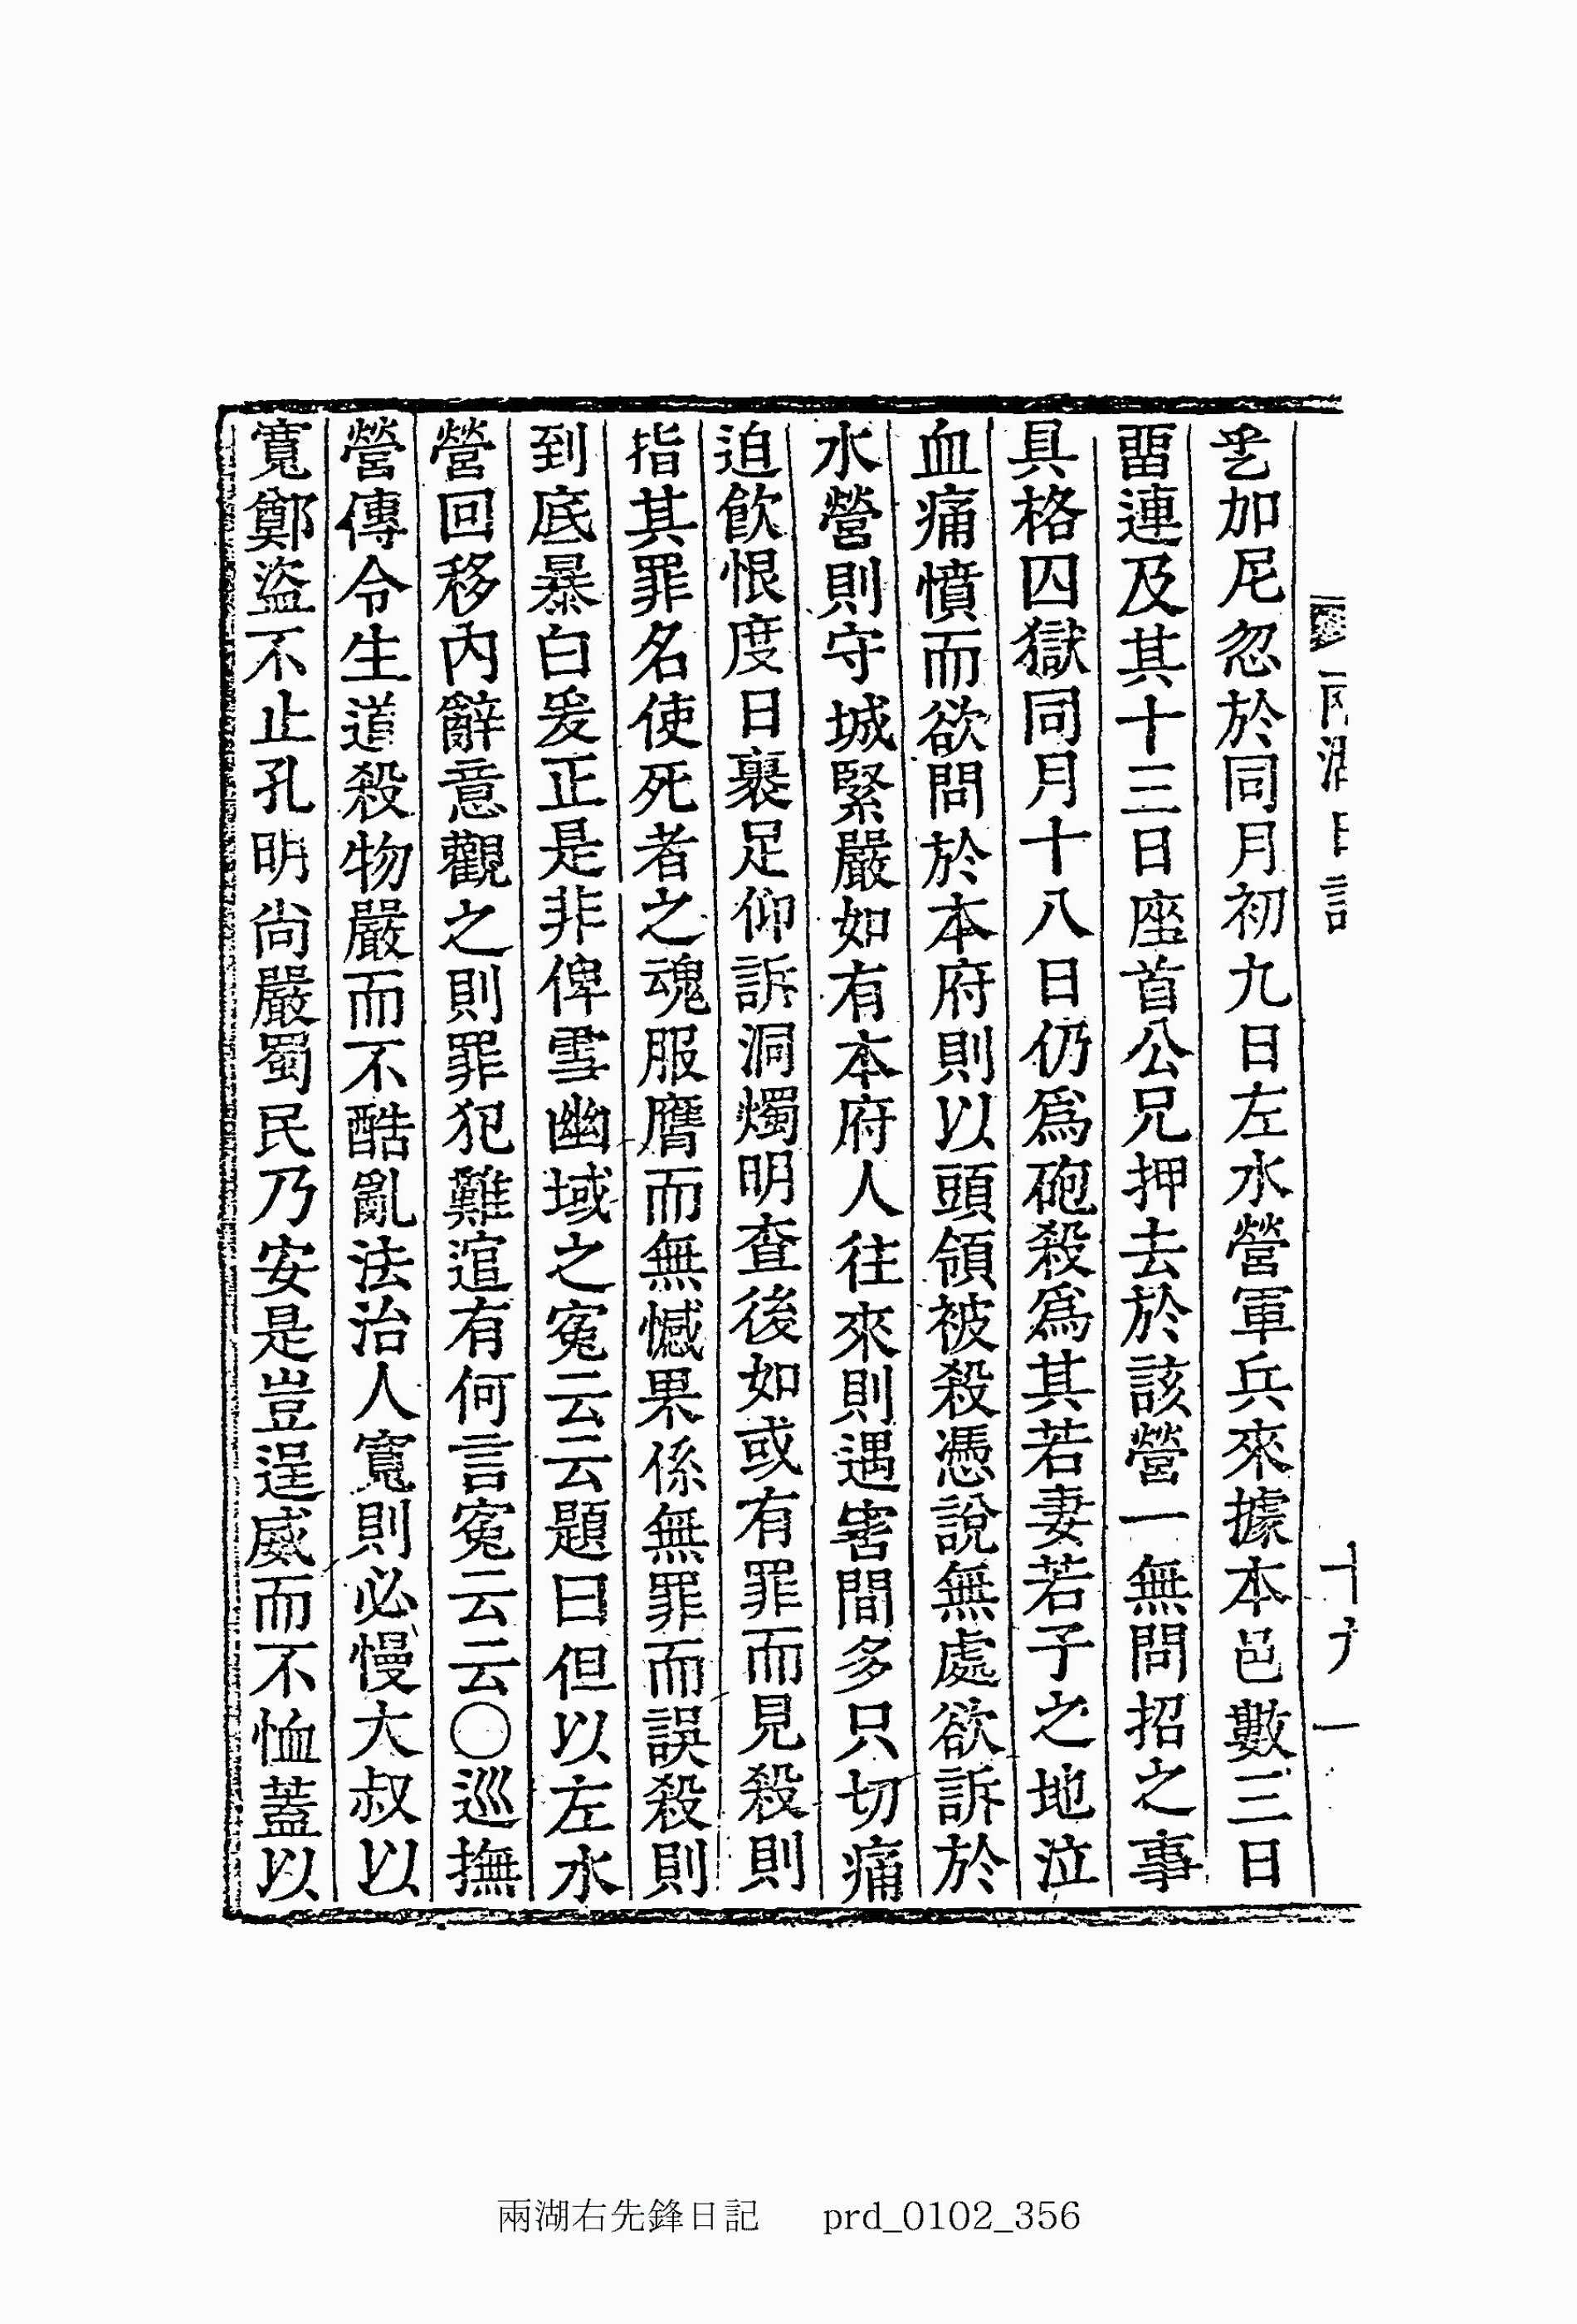 兩湖日記
十九
㖙加尼忽於同月初九日左水營軍兵來據本邑數三日
畱連及其十三日座首公兄押去於該營一無問招之事
具格囚獄同月十八日仍爲砲殺爲其若妻若子之地泣
血痛憤而欲問於本府則以頭領被殺憑說無處欲訴於
水營則守城緊嚴如有本府人往來則遇害間多只切痛
迫飮恨度日裹足仰訴洞燭明査後如或有罪而見殺則
指其罪名使死者之魂服膺而無憾果係無罪而誤殺則
到底暴白爰正是非俾雪幽域之寃云云題曰但以左水
營回移內辭意觀之則罪犯難逭有何言寃云云〇巡撫
營傳令生道殺物嚴而不酷亂法治人寬則必慢大叔以
寬鄭盜不止孔明尙嚴蜀民乃安是豈逞威而不恤蓋以
兩湖右先鋒日記 prd_0102_356